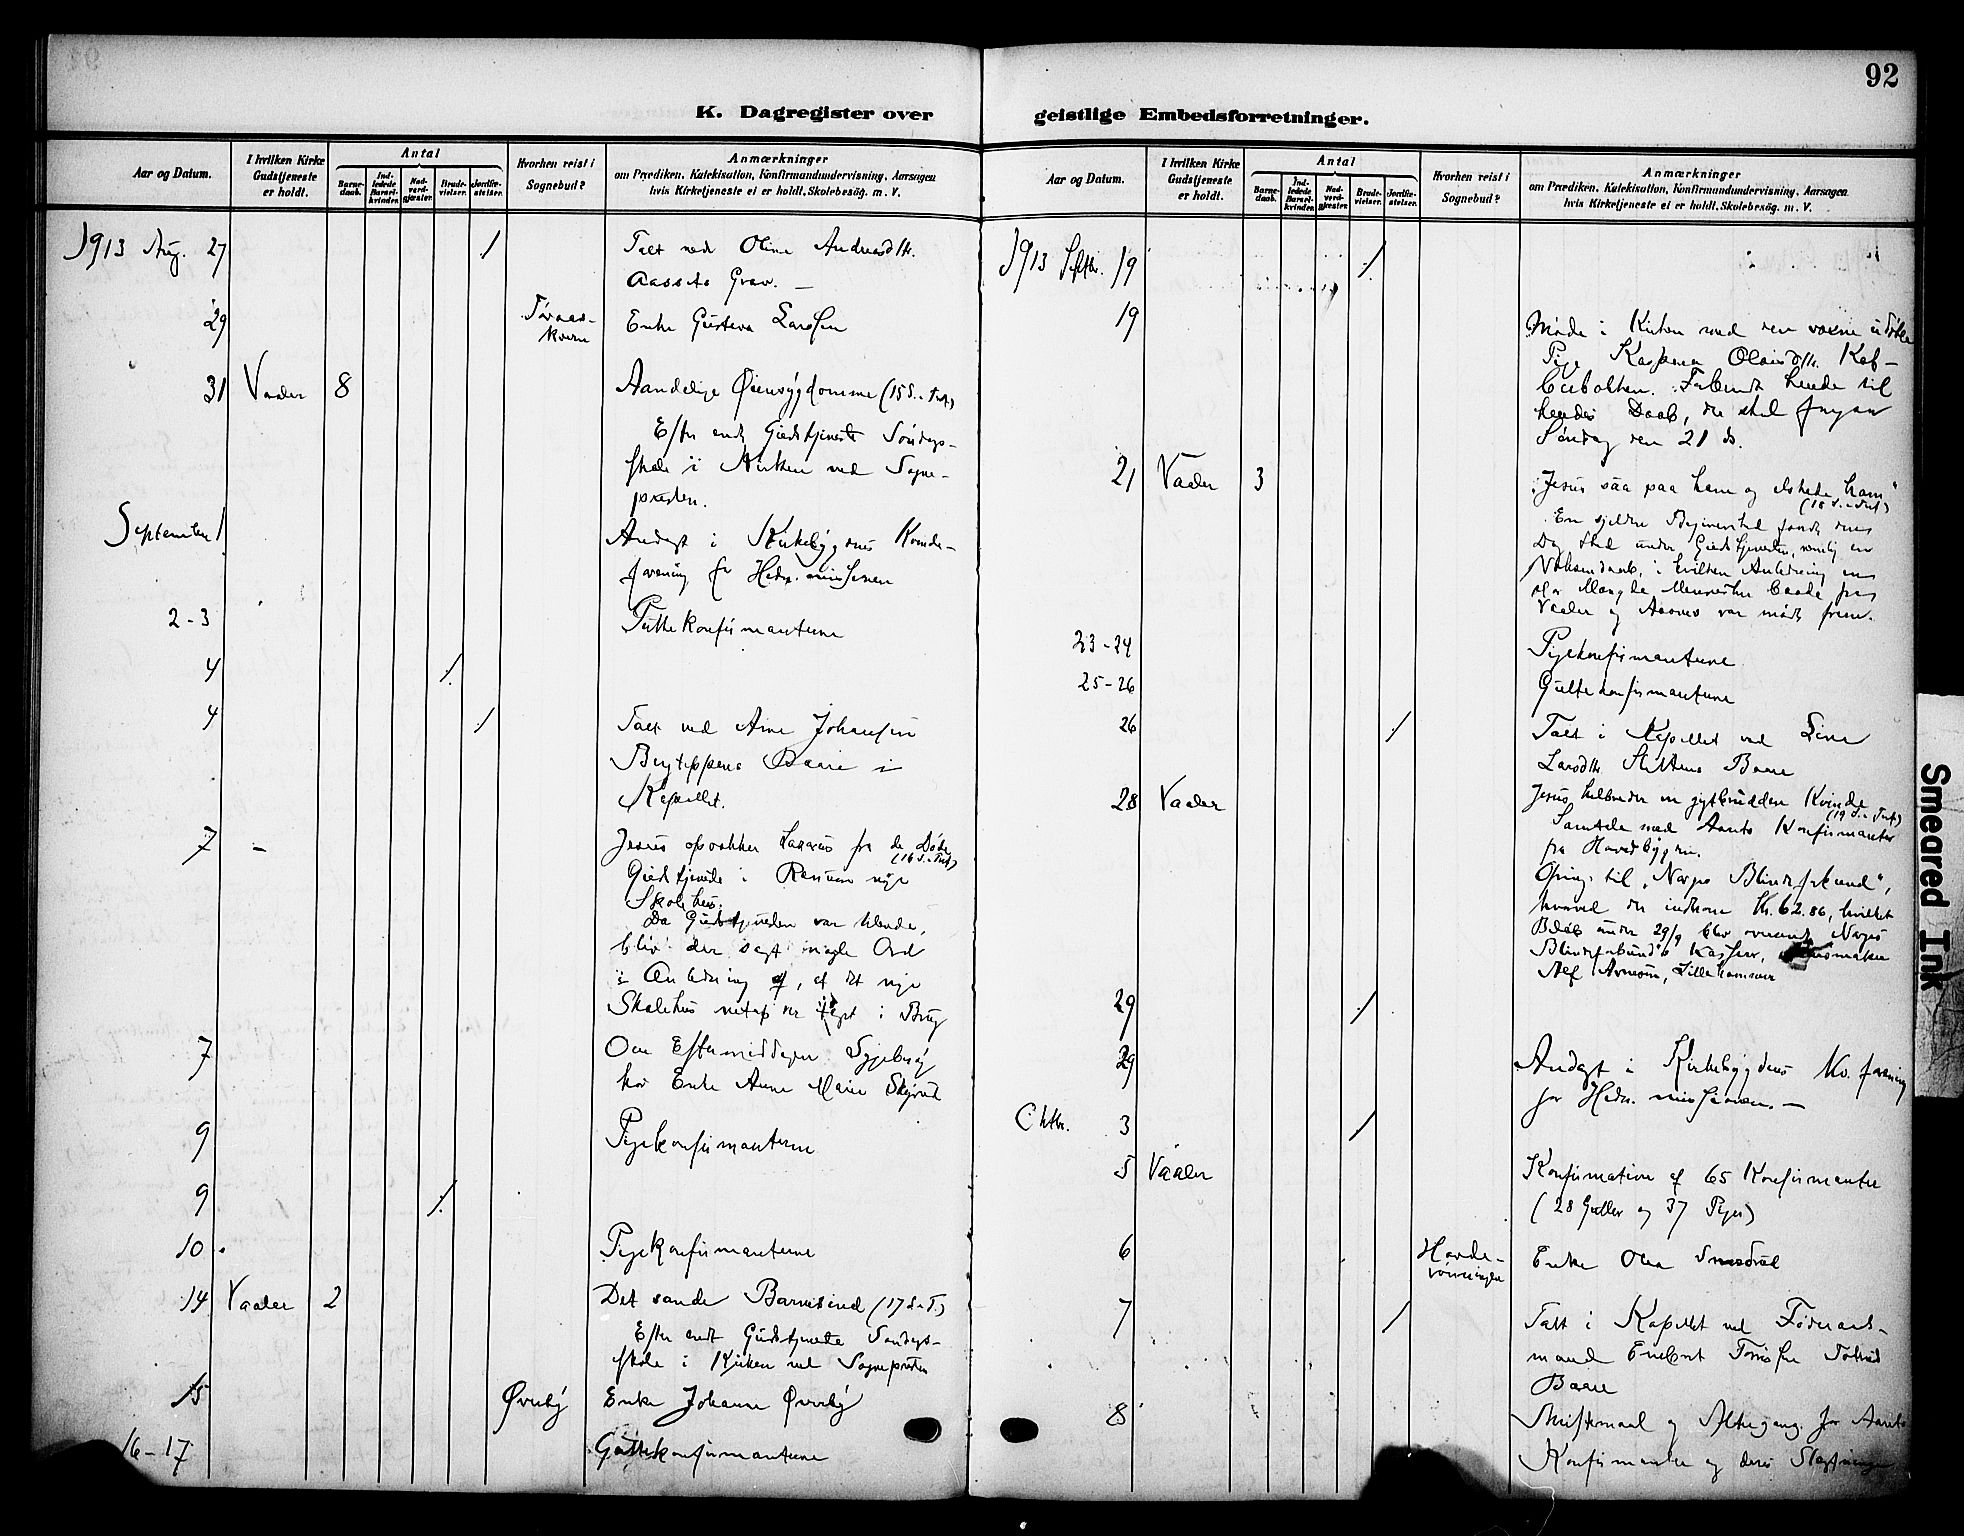 92
K. Dagregister over
geistlige Embedsforretninger.
Aar og Datum.
I hvilken Kirke
Gudstjeneste
er holdt.
Antal
Barne-
daab.
Ind-
ledede
Barsel-
kvinder.
Nad-
verd-
gjæster.
Brude-
vielser.
Jordfæ-
stelser.
Hvorhen reist i
Sognebud?
Anmærkninger
om Prædiken, Katekisation, Konfirmandundervisning, Aarsagen
hvis Kirketjeneste ei er holdt, Skolebesøg. m. V.
1913 Aug. 27 1 Talt ved Oline Andreasdtr.
Grav. —
29 Enke Gustava Larssen
31 Vaaler 8 Aandelige Øiensygdomme (15 S. e. Tref.)
Efter endt Gudstjeneste Søndags-
skole i Kirken ved Sogne-
presten.
September 1 Andagt i Kirkebygdens Kvinde-
forening for Hedn. missionen
2-3 Guttekonfirmanterne
4 1
4 1 Talt ved Arne Johansen
Baare i
Kapellet.
7 - Jesus opvækker Lazarus fra de Døde
(16 S. e. Tref.)
Gudstjeneste i nye
Skolehus.
Da Gudstjenesten var tilende,
blev der sagt nogle Ord
i Anledning af, at det nye
Skolehus netop er tagt i Brug
7 Om Eftermiddagen Sygebesøg
hos Enke Anne Marie
9 Pigekonfirmanterne
9 1
10 Pigekonfirmanterne
14 Vaaler 2 Det sande Barnesind (17 S. e. T.)
Efter endt Gudstjeneste Søndags-
skole i Kirken ved Sognepresten
15 Øverby Enke Johanne Øverby
16-17 Guttekonfirmanterne
Aar og Datum.
I hvilken Kirke
Gudstjeneste
er holdt.
Antal
Barne-
daab.
Ind-
ledede
Barsel-
kvinder.
Nad-
verd-
gjæster.
Brude-
vielser.
Jordfæ-
stelser.
Hvorhen reist i
Sognebud?
Anmærkninger
om Prædiken, Katekisation, Konfirmandundervisning, Aarsagen
hvis Kirketjeneste ei er holdt, Skolebesøg. m. V.
1913 Septbr. 19 1
19 Møde i Kirken med den voxne udøbte
Pige Olausdtr.
Forberedt hende til
hendes Daab, der skal foregaa
Søndag den 21 ds.
21 Vaaler 3 "Jesus saa paa ham og elskede ham"
(18 S. e. Tref.)
En sjelden Begivenhed fandt denne
Dag Sted under Gudstjenesten, nemlig en
Voksendaab, i hvilken Anledning en
stor Mængde Mennesker baade fra
Vaaler og Aasnes var mødt frem.
23-24 Pigekonfirmanterne
25-26 Guttekonfirmanterne
26 1 Talt i Kapellet ved Lina
Larsdtr. Baare
28 Vaaler Jesus helbreder en Kvinde
(19 S. e. Tref.)
Samtale med Aarets Konfirmanter
fra Hovedbygden.
Ofring til "Norges Blindeforbund",
hvorved der indkom Kr. 62.86, hvilket
Beløb under 29/9 blev oversendt Norges
Blindeforbund's Kasserer,
Alf Arnesen, Lillehammer
29 1
29 Andagt i Kirkebygdens Kv. forening
for Hedn. missionen. —
Oktbr. 3 1
5 Vaaler Konfirmation af 65 Konfirmanter
(28 Gutter og 37 Piger)
6 Enke Olea
7 1 Talt i Kapellet ved Føderaads-
mand
Baare
8 Skriftemaal og Altergang for Aarets
Konfirmanter og deres Slægtninge
Smeared Ink